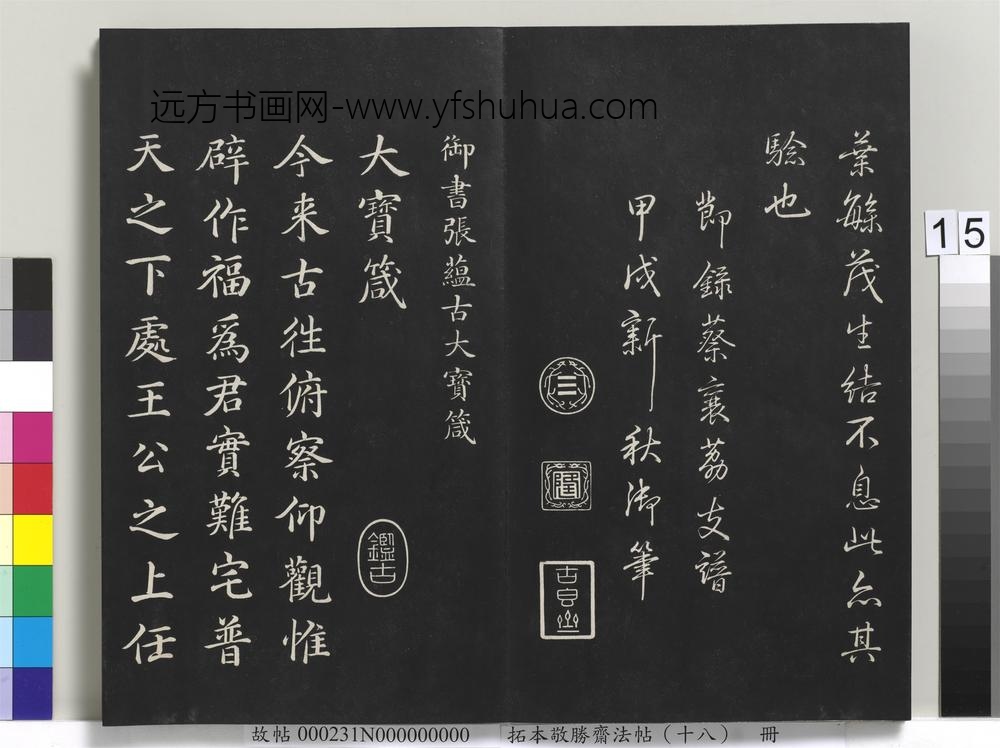 远方书画网-www.yfshuhua.com
葉繁茂生結不息此亦其
驗也
節錄蔡襄荔支譜
甲戌新秋御筆
三
御書張蘊古大寶箴
大寶箴
鑑古
今来古徃俯察仰觀惟
辟作福爲君實難宅普
天之下處王公之上任
15
故帖 000231N000000000 拓本敬勝齋法帖（十八） 冊